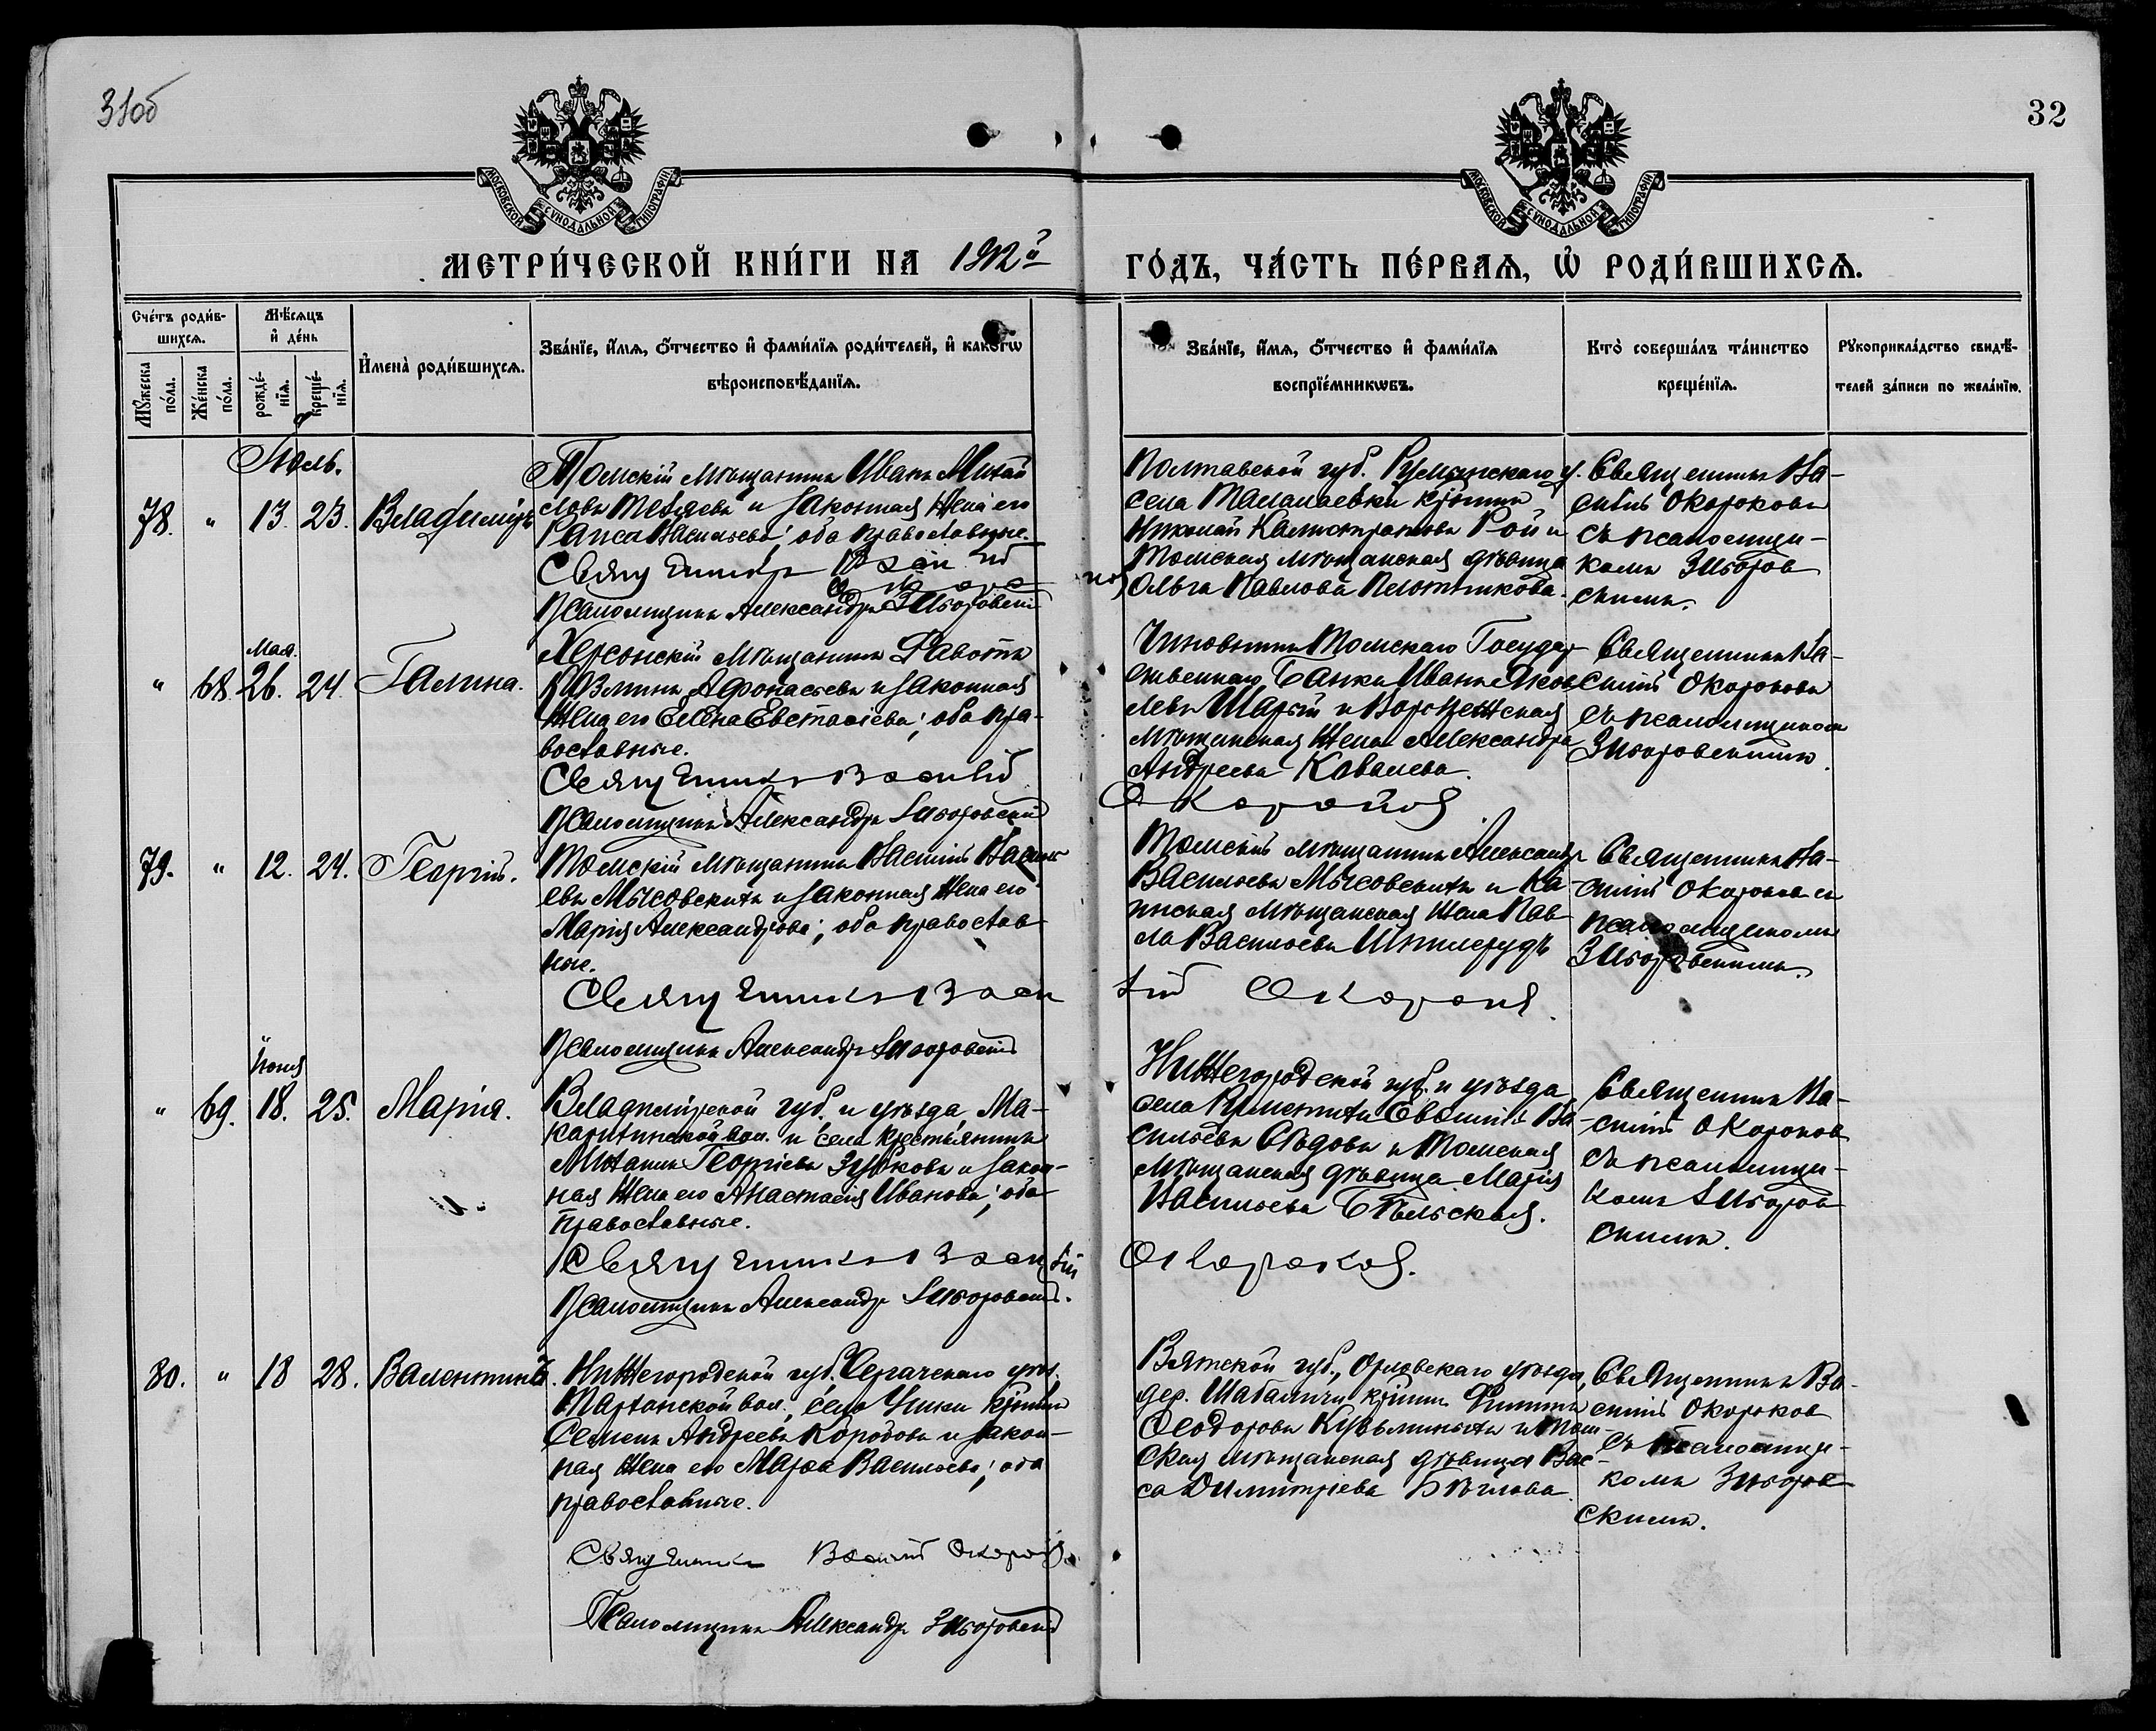 31об
32
МОСКОВСКОЙ СѴНОДАЛЬНОЙ ТИПОГРАФІИ
МОСКОВСКОЙ СѴНОДАЛЬНОЙ ТИПОГРАФІИ
МЕТРИ́ЧЕСКОЙ КНИ́ГИ НА 1912й
ГО́ДЪ, ЧА́СТЬ ПЕ́РВАЯ, Ѡ҆ РОДИ́ВШИХСЯ.
Сче́тъ роди́в-
шихся.
Му́жеска
по́ла.
Же́нска
по́ла.
Мѣ́сяцъ
и҆ де́нь
рожде́-
нїя.
креще́-
нїя.
И҆мена̀ роди́вшихся.
Зва́нїе, и҆́мя, ѻ҆́тчество и҆ фами́лїя роди́телей, и҆ како́гѡ
вѣроисповѣ́данїя.
Зва́нїе, и҆́мя, ѻ҆́тчество и҆ фами́лїя
воспрїе́мникѡвъ.
Кто̀ соверша́лъ та́инство
креще́нїя.
Рукоприкла́дство свидѣ́-
телей за́писи по жела́нїю.
Іюль.
78. " 13. 23. Владиміръ
Томскій мѣщанинъ Иванъ Михай
ловъ и законная жена его
Раиса Васильева; оба православные.
Священникъ Василій
Псаломщикъ Александръ Зигоровскій
Полтавской губ. у.
села Талалаевки кр-нинъ
Николай Калистратовъ Рой и
Томская мѣщанская дѣвица
Ольга Павлова Плотникова.
Священникъ Ва-
силій Окороковъ
съ псаломщи-
комъ Зигоров
скимъ.
Мая.
" 68. 26. 24. Галина.
Херсонскій мѣщанинъ
Афонасьевъ и законная
жена его Елена Евстафіева; оба пра-
вославные.
Священникъ Василій
Псаломщикъ Александръ Зигоровскій
Чиновникъ Томскаго Государ
ственнаго Банка Иванъ Яков
левъ и Воронежская
мѣщанская жена Александра
Андреева Ковалева.
Окороковъ
Священникъ Ва-
силій Окороковъ
съ псаломщикомъ
Зигоровскимъ.
79. " 12. 24. Георгій.
Томскій мѣщанинъ Василій Василь
евъ и законная жена его
Марія Александрова; оба православ
ные.
Священникъ Васи
Псаломщикъ Александръ Зигоровскій
Томскій мѣщанинъ Александръ
Васильевъ и Ка-
инская мѣщанская жена Пав
ла Васильева
лій Окороковъ
Священникъ Ва-
силій Окороковъ съ
псаломщикомъ
Зигоровскимъ.
Іюня
" 69. 18. 25. Марія.
Владимірской губ. и уѣзда Ма-
вол. и села крестьянинъ
Михаилъ Георгіевъ Зубковъ и закон-
ная жена его Анастасія Иванова; оба
православные.
Священникъ Василій
Псаломщикъ Александръ Зигоровскій.
Нижегородской губ. и уѣзда
села Ва
сильевъ Сѣдовъ и Томская
мѣщанская дѣвица Марія
Васильева Бѣльская.
Окороковъ.
Священникъ Ва-
силій Окороковъ
съ псаломщи-
комъ Зигоров
скимъ.
80. " 18 28. Валентинъ.
Нижегородской губ. Сергачскаго уѣз.
вол., села кр-нинъ
Семенъ Андреевъ Коробовъ и закон-
ная жена его Марфа Васильева; оба
православные.
Священникъ Василій Окороковъ.
Псаломщикъ Александръ Зигоровскій
Вятской губ., Орловскаго уѣзда,
дер. Шабаличи кр-нинъ Филиппъ
Ѳеодоровъ и Том-
ская мѣщанская дѣвица Вас-
са Димитріева Бѣглова.
Священникъ Ва-
силій Окороковъ
съ псаломщи-
комъ Зигоров
скимъ.